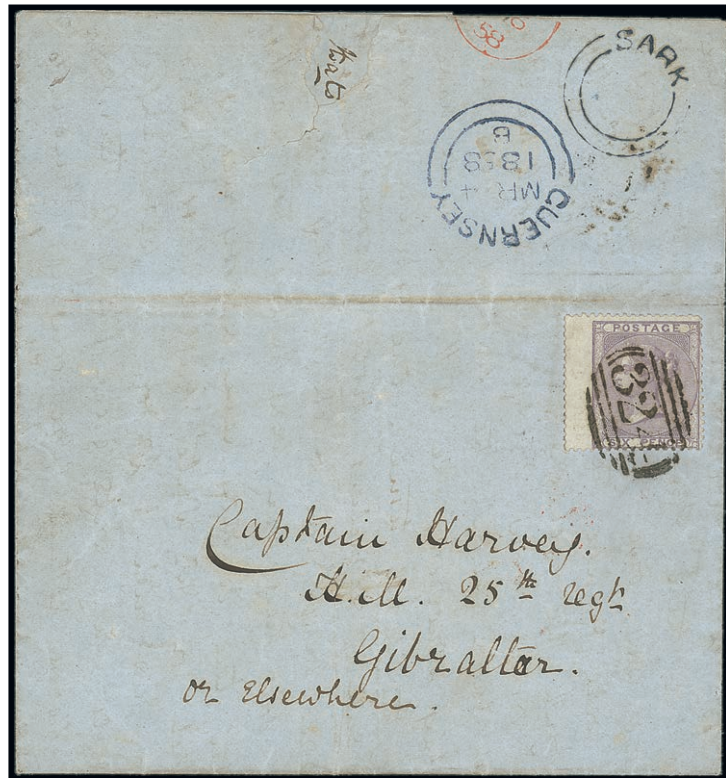 58
SARK
GUERNSEY
MR 4
1858
B
POSTAGE
324
SIX PENCE
Captain Harvey.
H.M. 25th regt
Gibraltar.
or Elsewhere.